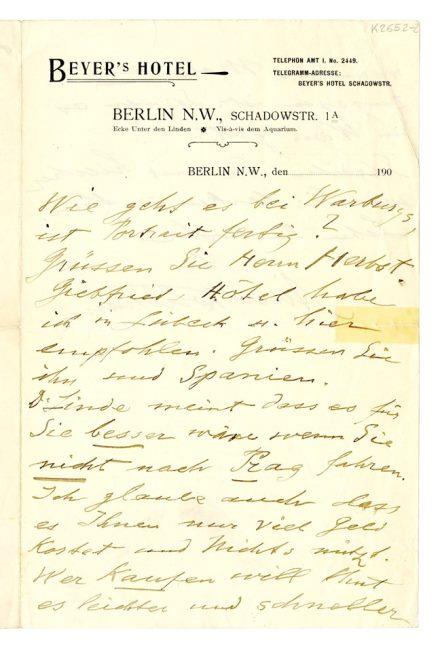 K2652-2
BEYER'S HOTEL
TELEPHON AMT I. No. 2449.
TELEGRAMM-ADRESSE:
BEYER'S HOTEL SCHADOWSTR.
BERLIN N.W., SCHADOWSTR. 1A
Ecke Unter den Linden Vis-à-vis dem Aquarium.
BERLIN N.W., den 190
Wie geht es bei Warburgs,
ist Portrait fertig?
Grüssen Sie Herrn Herbst
Hôtel habe
ich in Lübeck u. hier
empfohlen. Grüssen Sie
ihn und Spanien.
Dr Linde meint dass es für
Sie besser wäre wenn Sie
nicht nach Prag fahren.
Ich glaube auch dass
es Ihnen nur viel Geld
kostet und Nichts nützt.
Wer Kaufen will thut
es leichter und schneller